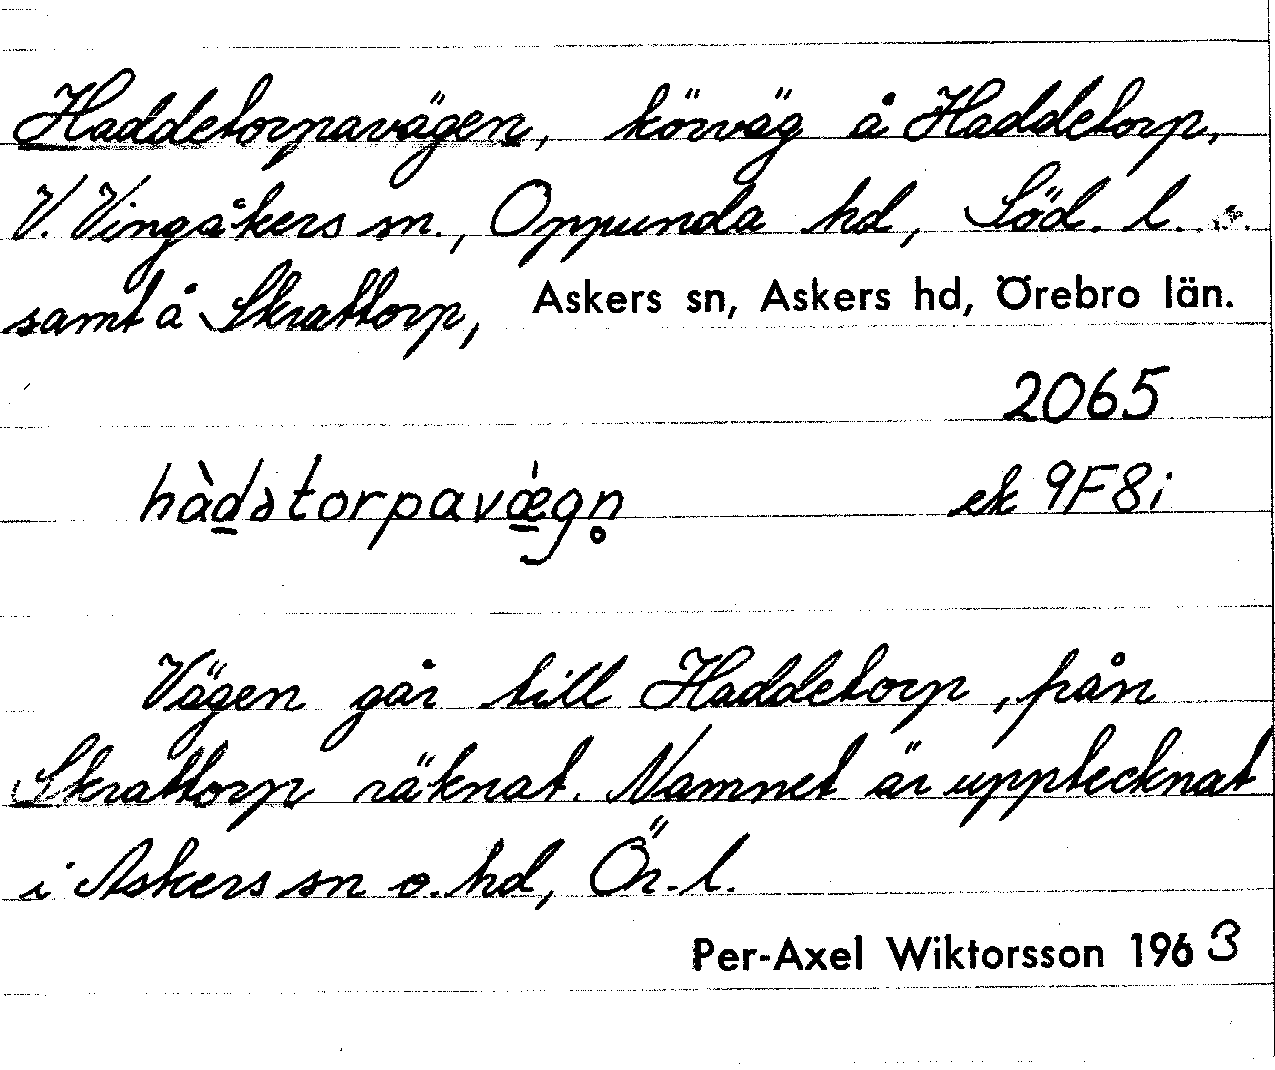 Haddetorpavägen, körväg å Haddetorp,
V. Vingåkers sn., Oppunda hd, Söd. l.
samt å Skrattorp, Askers sn, Askers hd, Örebro län.
2065
hàdətorpavǽgn̥ ek 9F8i
Vägen går till Haddetorp, från
Skrattorp räknat. Namnet är upptecknat
i Askers sn o. hd, Ör. l.
Per-Axel Wiktorsson 1963